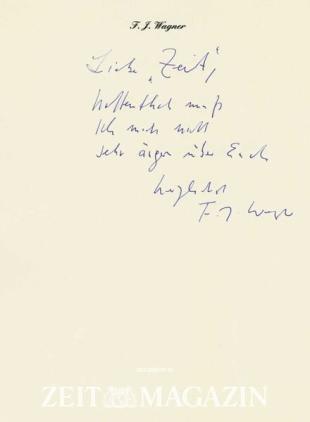 F. J. Wagner
Liebe „Zeit",
hoffentlich muß
ich mich nicht
sehr ärgern über Euch
herzlichst
F. J. Wagner
ZEIT MAGAZIN